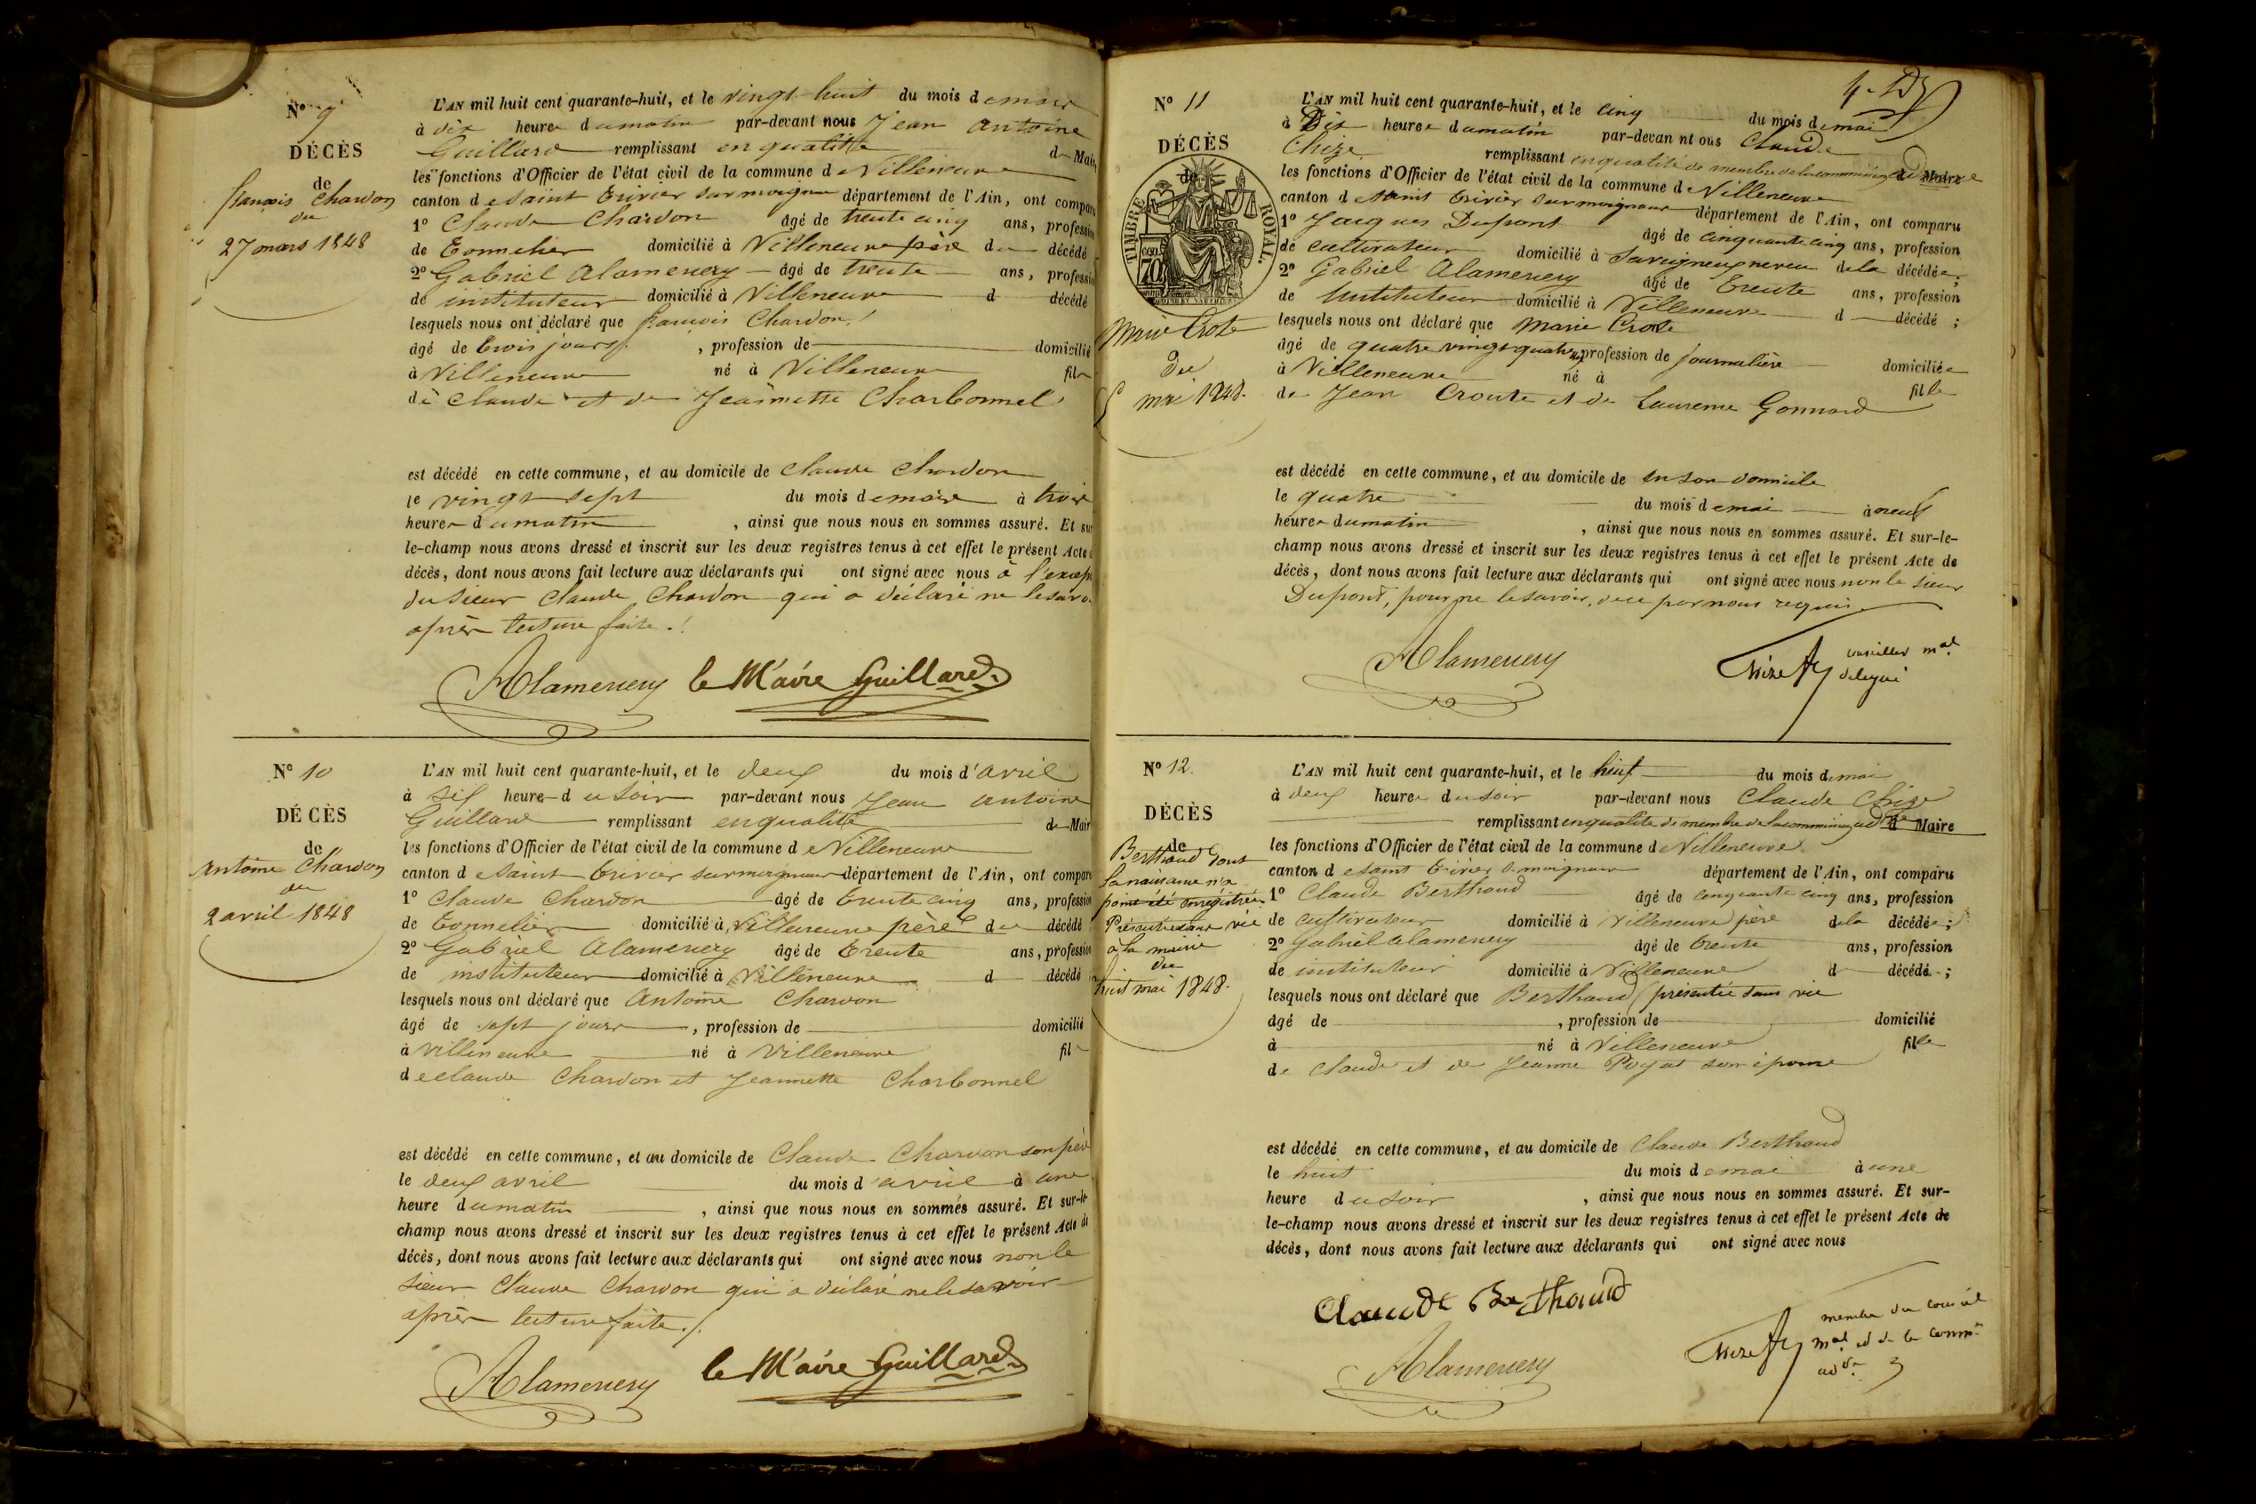 N° 9
DÉCÈS
de
françois Chardon
du
27 mars 1848
L'AN mil huit cent quarante-huit, et le vingt huit du mois de mars
à dix heures du matin par-devant nous Jean antoine
Guillard remplissant en qualité de Maire
les fonctions d'Officier de l'état civil de la commune de Villeneuve
canton de Saint trivier sur moignans département de l'Ain, ont comparu
1° Claude Chardon âgé de trente cinq ans, profession
de Tonnelier domicilié à Villeneuve père du décédé
2° Gabriel Alamercery âgé de trente ans, profession
de instituteur domicilié à Villeneuve d décédé
lesquels nous ont déclaré que françois Chardon
âgé de trois jours, profession de domicilié
à Villeneuve né à Villeneuve fils
de Claude et de Jeannette Charbonnel
est décédé en cette commune, et au domicile de Claude Chardon
le vingt sept du mois de mars à trois
heures du matin, ainsi que nous nous en sommes assuré. Et sur
le-champ nous avons dressé et inscrit sur les deux registres tenus à cet effet le présent Acte
décès, dont nous avons fait lecture aux déclarants qui ont signé avec nous à l'excep
du sieur Claude Chardon qui a déclaré ne le savo
après lecture faite.
Alamercery le Maire Guillard
N° 10
DÉCÈS
de
Antoine Chardon
du
2 avril 1848
L'AN mil huit cent quarante-huit, et le deux du mois d'avril
à six heures du soir par-devant nous Jean antoine
Guillard remplissant en qualité de Maire
les fonctions d'Officier de l'état civil de la commune de Villeneuve
canton de Saint trivier sur moignans département de l'Ain, ont comparu
1° Claude Chardon âgé de trente cinq ans, profession
de Tonnelier domicilié à Villeneuve père du décédé
2° Gabriel Alamercery âgé de trente ans, profession
de instituteur domicilié à Villeneuve d décédé
lesquels nous ont déclaré que Antoine Chardon
âgé de sept jours, profession de domicilié
à Villeneuve né à Villeneuve fils
de Claude Chardon et Jeannette Charbonnel
est décédé en cette commune, et au domicile de Claude Chardon son père
le deux avril du mois d'avril à une
heure du matin, ainsi que nous nous en sommes assuré. Et sur-le
champ nous avons dressé et inscrit sur les deux registres tenus à cet effet le présent Acte de
décès, dont nous avons fait lecture aux déclarants qui ont signé avec nous non le
sieur Claude Chardon qui a déclaré ne le savoir
après lecture faite.
Alamercery le Maire Guillard
N° 11
DÉCÈS
de
TIMBRE ROYAL.
Marie Crote
du
mai 1848.
L'AN mil huit cent quarante-huit, et le cinq du mois de mai
à Dix heures du matin par-devan nt ous Claude
Chize remplissant en qualité de membre de la commission adtive d Maire
les fonctions d'Officier de l'état civil de la commune de Villeneuve
canton de Saint trivier sur moignans département de l'Ain, ont comparu
1° Jacques Dupont âgé de cinquante cinq ans, profession
de cultivateur domicilié à Savigneux neveu de la décédée;
2° Gabriel Alamercery âgé de trente ans, profession
de Instituteur domicilié à Villeneuve d décédé;
lesquels nous ont déclaré que Marie Croute
âgé de quatre vingt quatre, profession de journalière domiciliée
à Villeneuve né à fille
de Jean Croute et de Laurence Gonnard
est décédé en cette commune, et au domicile de en son domicile
le quatre du mois de mai à neuf
heures du matin, ainsi que nous nous en sommes assuré. Et sur-le-
champ nous avons dressé et inscrit sur les deux registres tenus à cet effet le présent Acte de
décès, dont nous avons fait lecture aux déclarants qui ont signé avec nous non le sieur
Dupont, pour ne le savoir, de ce par nous requis
Alamercery Chize conseiller mal
délégué
N° 12
DÉCÈS
de
Berthaud dont
la naissance n'a
point été enregistrée
Présentée sans vie
à la mairie
du
huit mai 1848.
L'AN mil huit cent quarante-huit, et le huit du mois de mai
à deux heures du soir par-devant nous Claude Chize
remplissant en qualité de membre de la commission adtive d Maire
les fonctions d'Officier de l'état civil de la commune de Villeneuve
canton de Saint trivier s moignans département de l'Ain, ont comparu
1° Claude Berthaud âgé de cinquante cinq ans, profession
de cultivateur domicilié à Villeneuve père de la décédée;
2° Gabriel Alamercery âgé de trente ans, profession
de instituteur domicilié à Villeneuve d décédé;
lesquels nous ont déclaré que Berthaud présentée sans vie
âgé de, profession de domicilié
à né à Villeneuve fille
de Claude et de Jeanne Poyat son épouse
est décédé en cette commune, et au domicile de Claude Berthaud
le huit du mois de mai à une
heure du soir, ainsi que nous nous en sommes assuré. Et sur-
le-champ nous avons dressé et inscrit sur les deux registres tenus à cet effet le présent Acte de
décès, dont nous avons fait lecture aux déclarants qui ont signé avec nous
Claude Berthaud
Alamercery Chize membre du conseil
mal et de la commn
adve